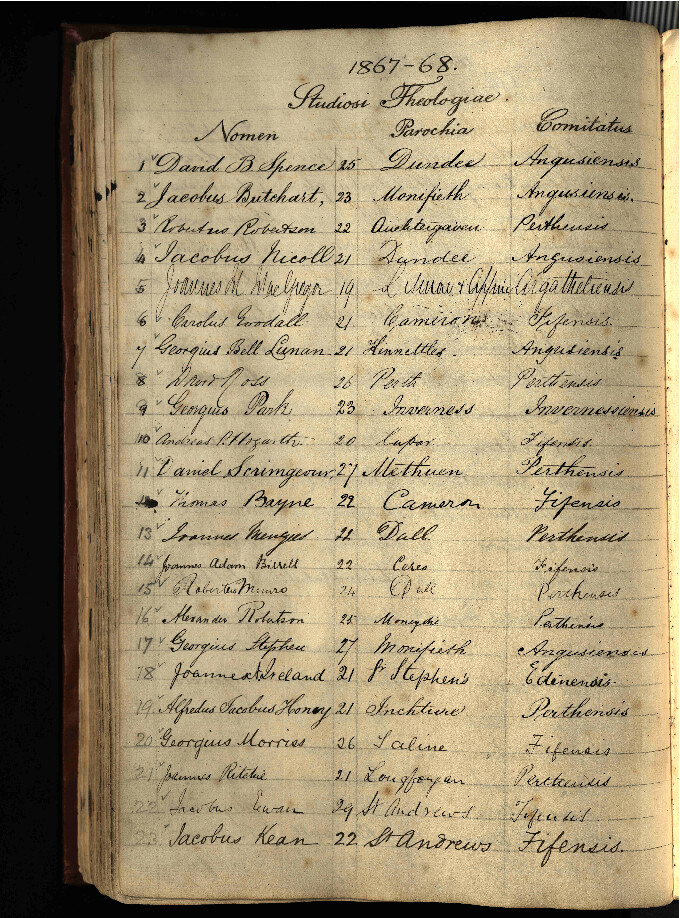 1867-68.
Studiosi Theologiae.
Nomen Parochia Comitatus
1 David B. Spence 25 Dundee Angusiensis
2 Jacobus Butchart, 23 Monifieth Angusiensis.
3 Robertus Robertson 22 Auchtergaven Perthensis
4 Jacobus Nicoll 21 Dundee Angusiensis
5 Joannes M. MacGregor 19 Lismore & Appin
6 Carolus Goodall 21 Cameron Fifensis.
7 Georgius Bell Lunan 21 Kinnettles. Angusiensis
8 David Ross 26 Perth Perthensis
9 Georgius Park 23 Inverness Invernessiensis
10 Andreas P. Hogarth 20 Cupar Fifensis.
11 Daniel Scrimgeour, 27 Methven Perthensis
Thomas Bayne 22 Cameron Fifensis
13 Joannes Menzies 22 Dull Perthensis
14 Joannes Adam Birrell 22 Ceres Fifensis
15 Robertus Munro 24 Dull Perthensis
16 Alexander Robertson 25 Moneydie Perthensis
17 Georgius Stephen 27 Monifieth Angusiensis
18 Joannes Ireland 21 St Stephen's Edinensis.
19 Alfredus Jacobus Honey 21 Inchture Perthensis
20 Georgius Morriss 26 Saline Fifensis
21 Joannes Ritchie 21 Longforgan Perthensis
22 Jacobus Ewan 29 St Andrews Fifensis
23 Jacobus Kean 22 St Andrews Fifensis.